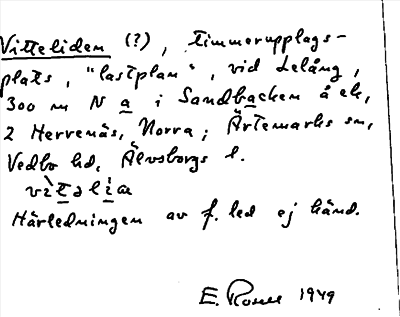 Vitteliden (?), timmerupplags-
plats, "lastplan", vid Lelång,
300 m N a i Sandbacken å ek,
2 Hervenäs, Norra; Ärtemarks sn,
Vedbo hd, Älvsborgs l.
Härledningen av f. led ej känd.
E. Rosell 1949